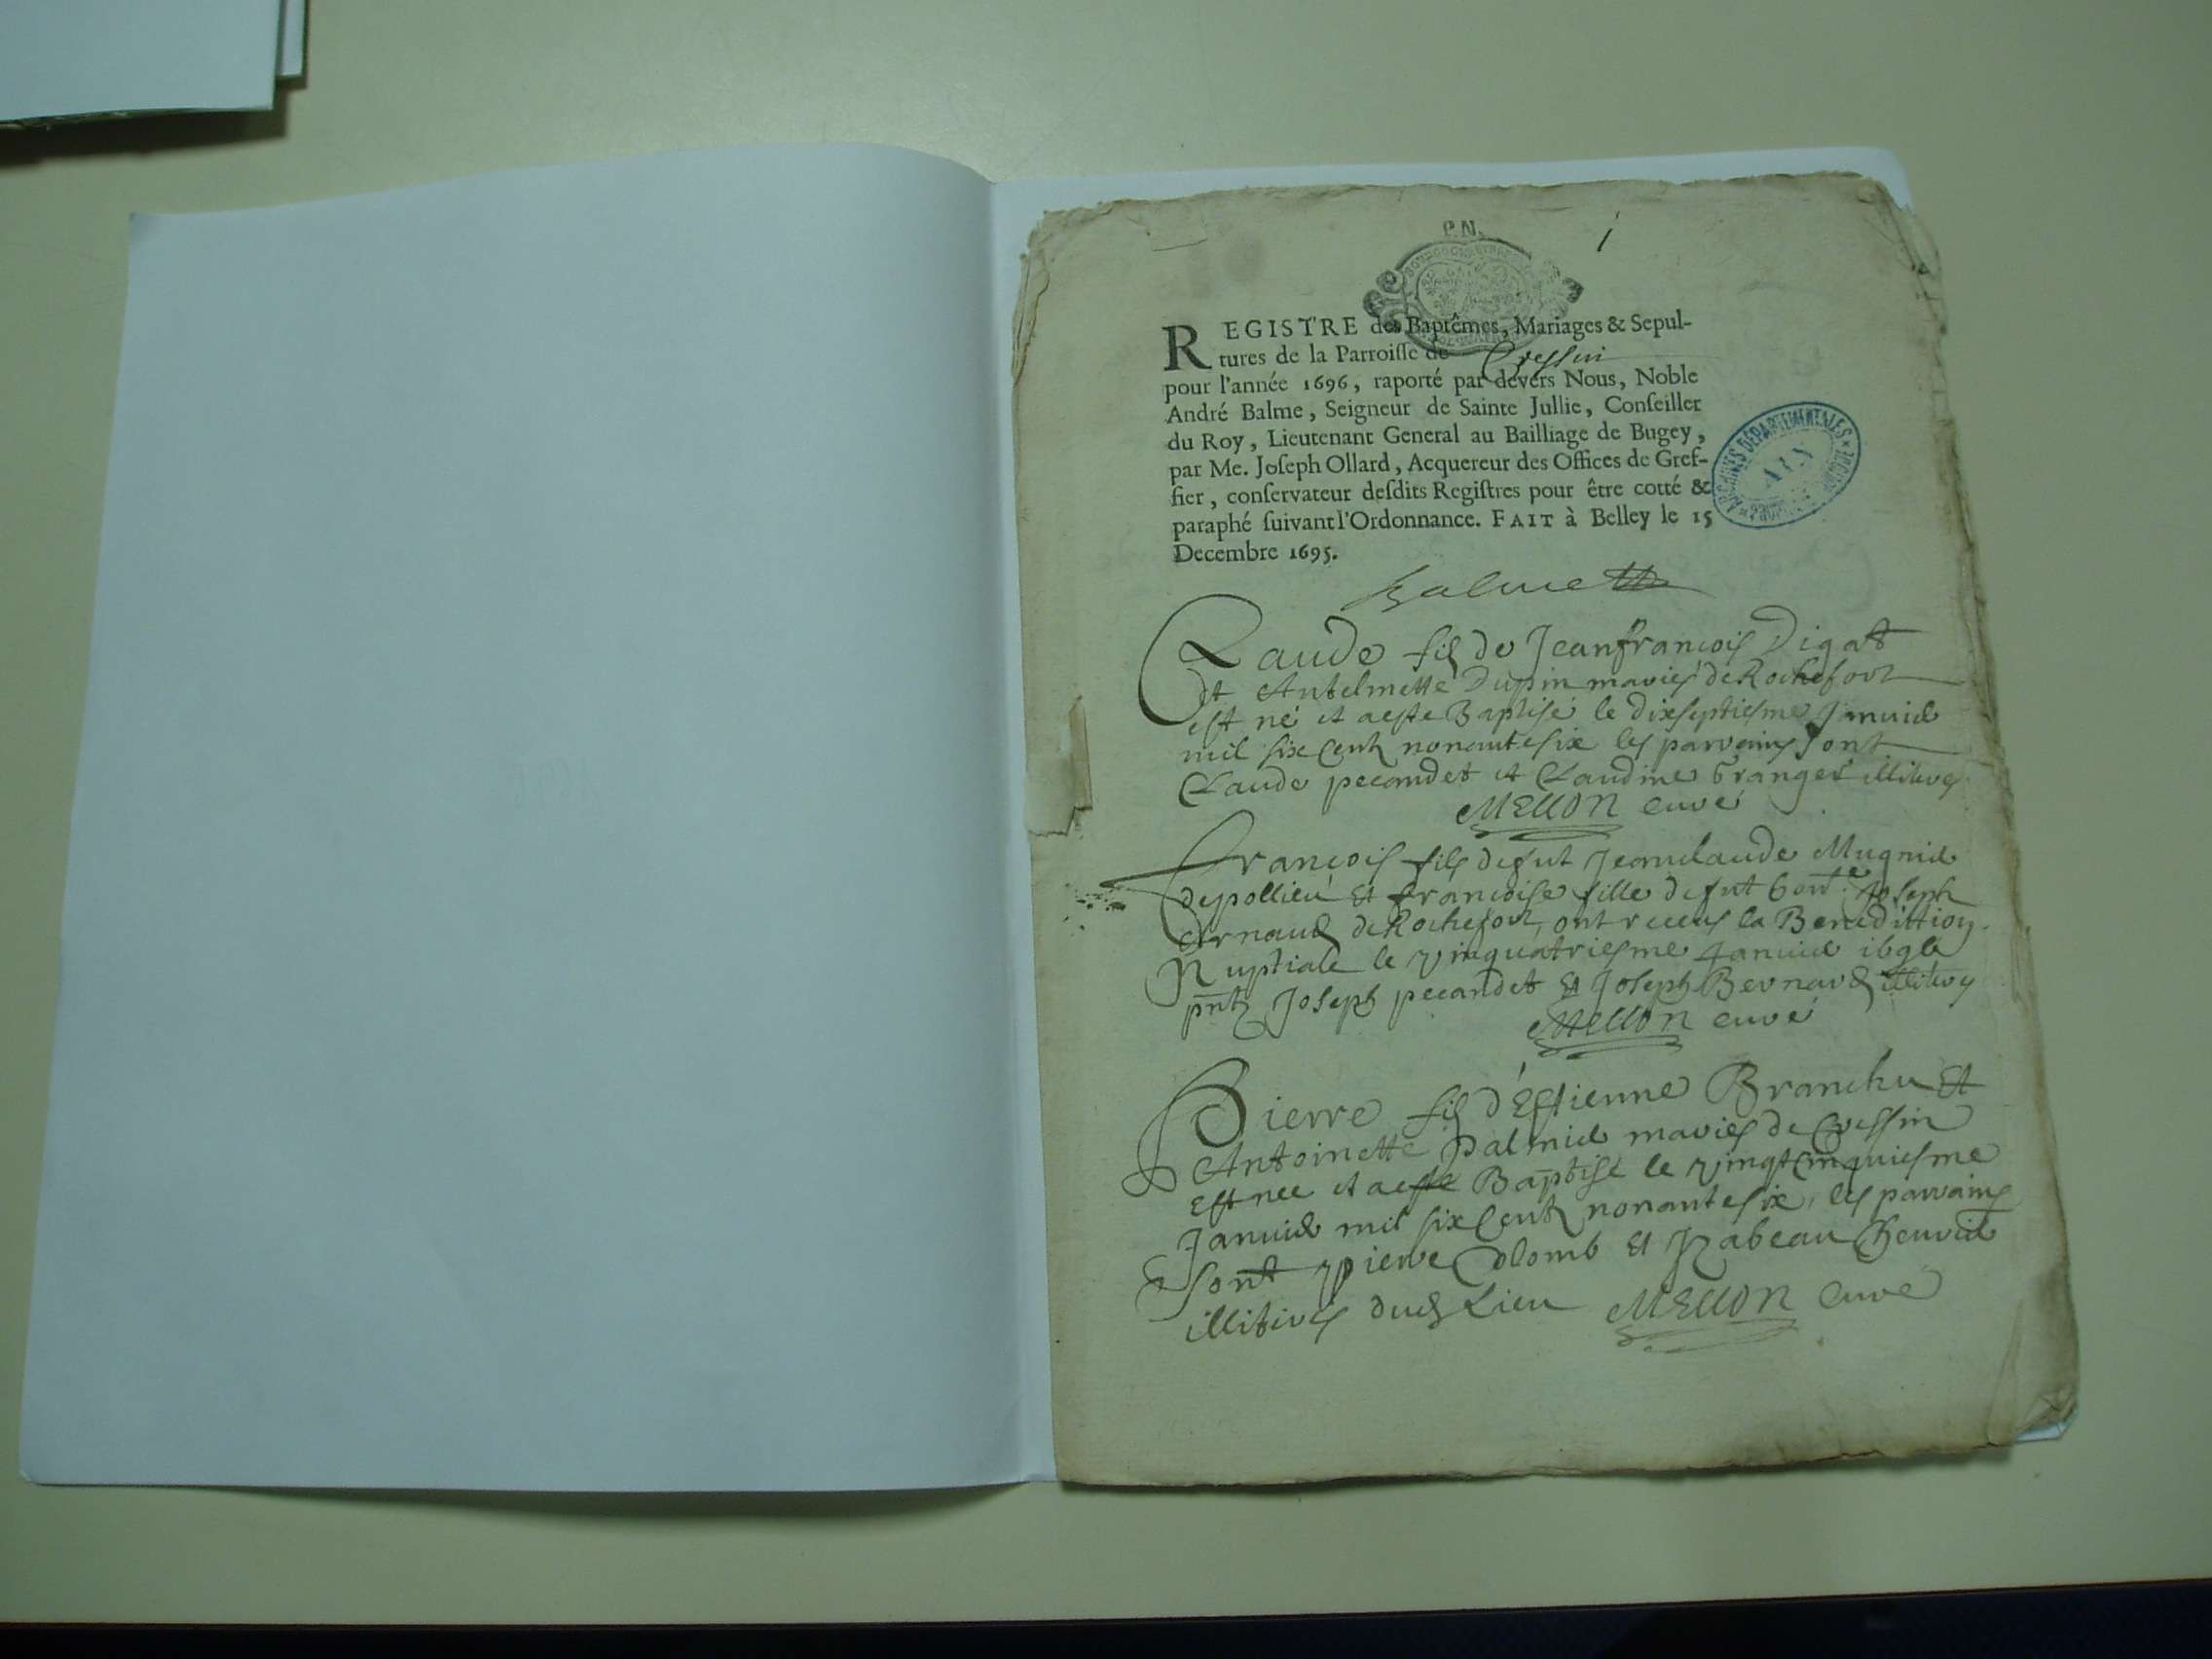 P.N.
1
REGISTRE des Baptêmes, Mariages & Sepul-
tures de la Parroisse de Cressin
pour l'année 1696, raporté par devers Nous, Noble
André Balme, Seigneur de Sainte Jullie, Conseiller
du Roy, Lieutenant General au Bailliage de Bugey,
par Me. Joseph Ollard, Acquereur des Offices de Gref-
fier, conservateur desdits Registres pour être cotté &
paraphé suivant l'Ordonnance. FAIT à Belley le 15
Decembre 1695.
Balme
ARCHIVES DÉPARTEMENTALES
AIN
Claude fils de Jeanfrancois Digat
et Antelmette Dupin mariés de Rochefort
est né et a este Baptisé le dixseptiesme Janvier
mil six cent nonante six les parrains sont
Claude pecandet et Claudine Granger illitirés
MELLON curé
francois fils de fut Jeanclaude Mugnier
de pollieu et francoise fille de fut Joseph
Arnaud de Rochefort, ont receus la Benediction
Nuptiale le vingquatriesme Janvier 1696
pnts Joseph pecandet et Joseph Bernard illitirés
MELLON curé
Pierre fils d'Estienne Branchu et
Antoinette palmier mariés de Cressin
Est nee et a este Baptisé le vingtcinquiesme
Janvier mil six cent nonante six, les parrains
sont pierre Colomb et Izabeau Chevrier
illitirés dud Lieu MELLON curé